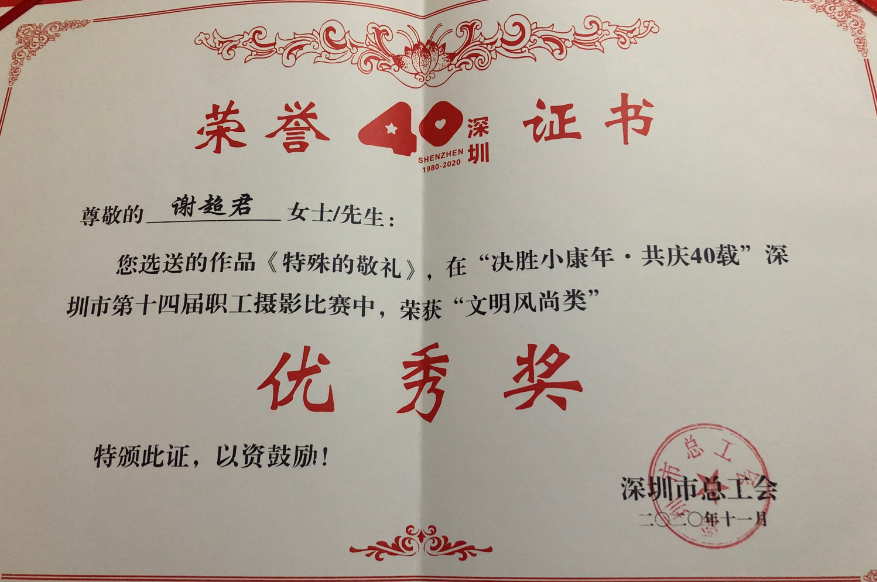 荣誉 40 深圳 证书
SHENZHEN
1980-2020
尊敬的 谢超君 女士/先生：
您选送的作品《特殊的敬礼》，在“决胜小康年·共庆40载”深
圳市第十四届职工摄影比赛中，荣获“文明风尚类”
优秀奖
特颁此证，以资鼓励！
深圳市总工会
二〇二〇年十一月
深圳市总工会